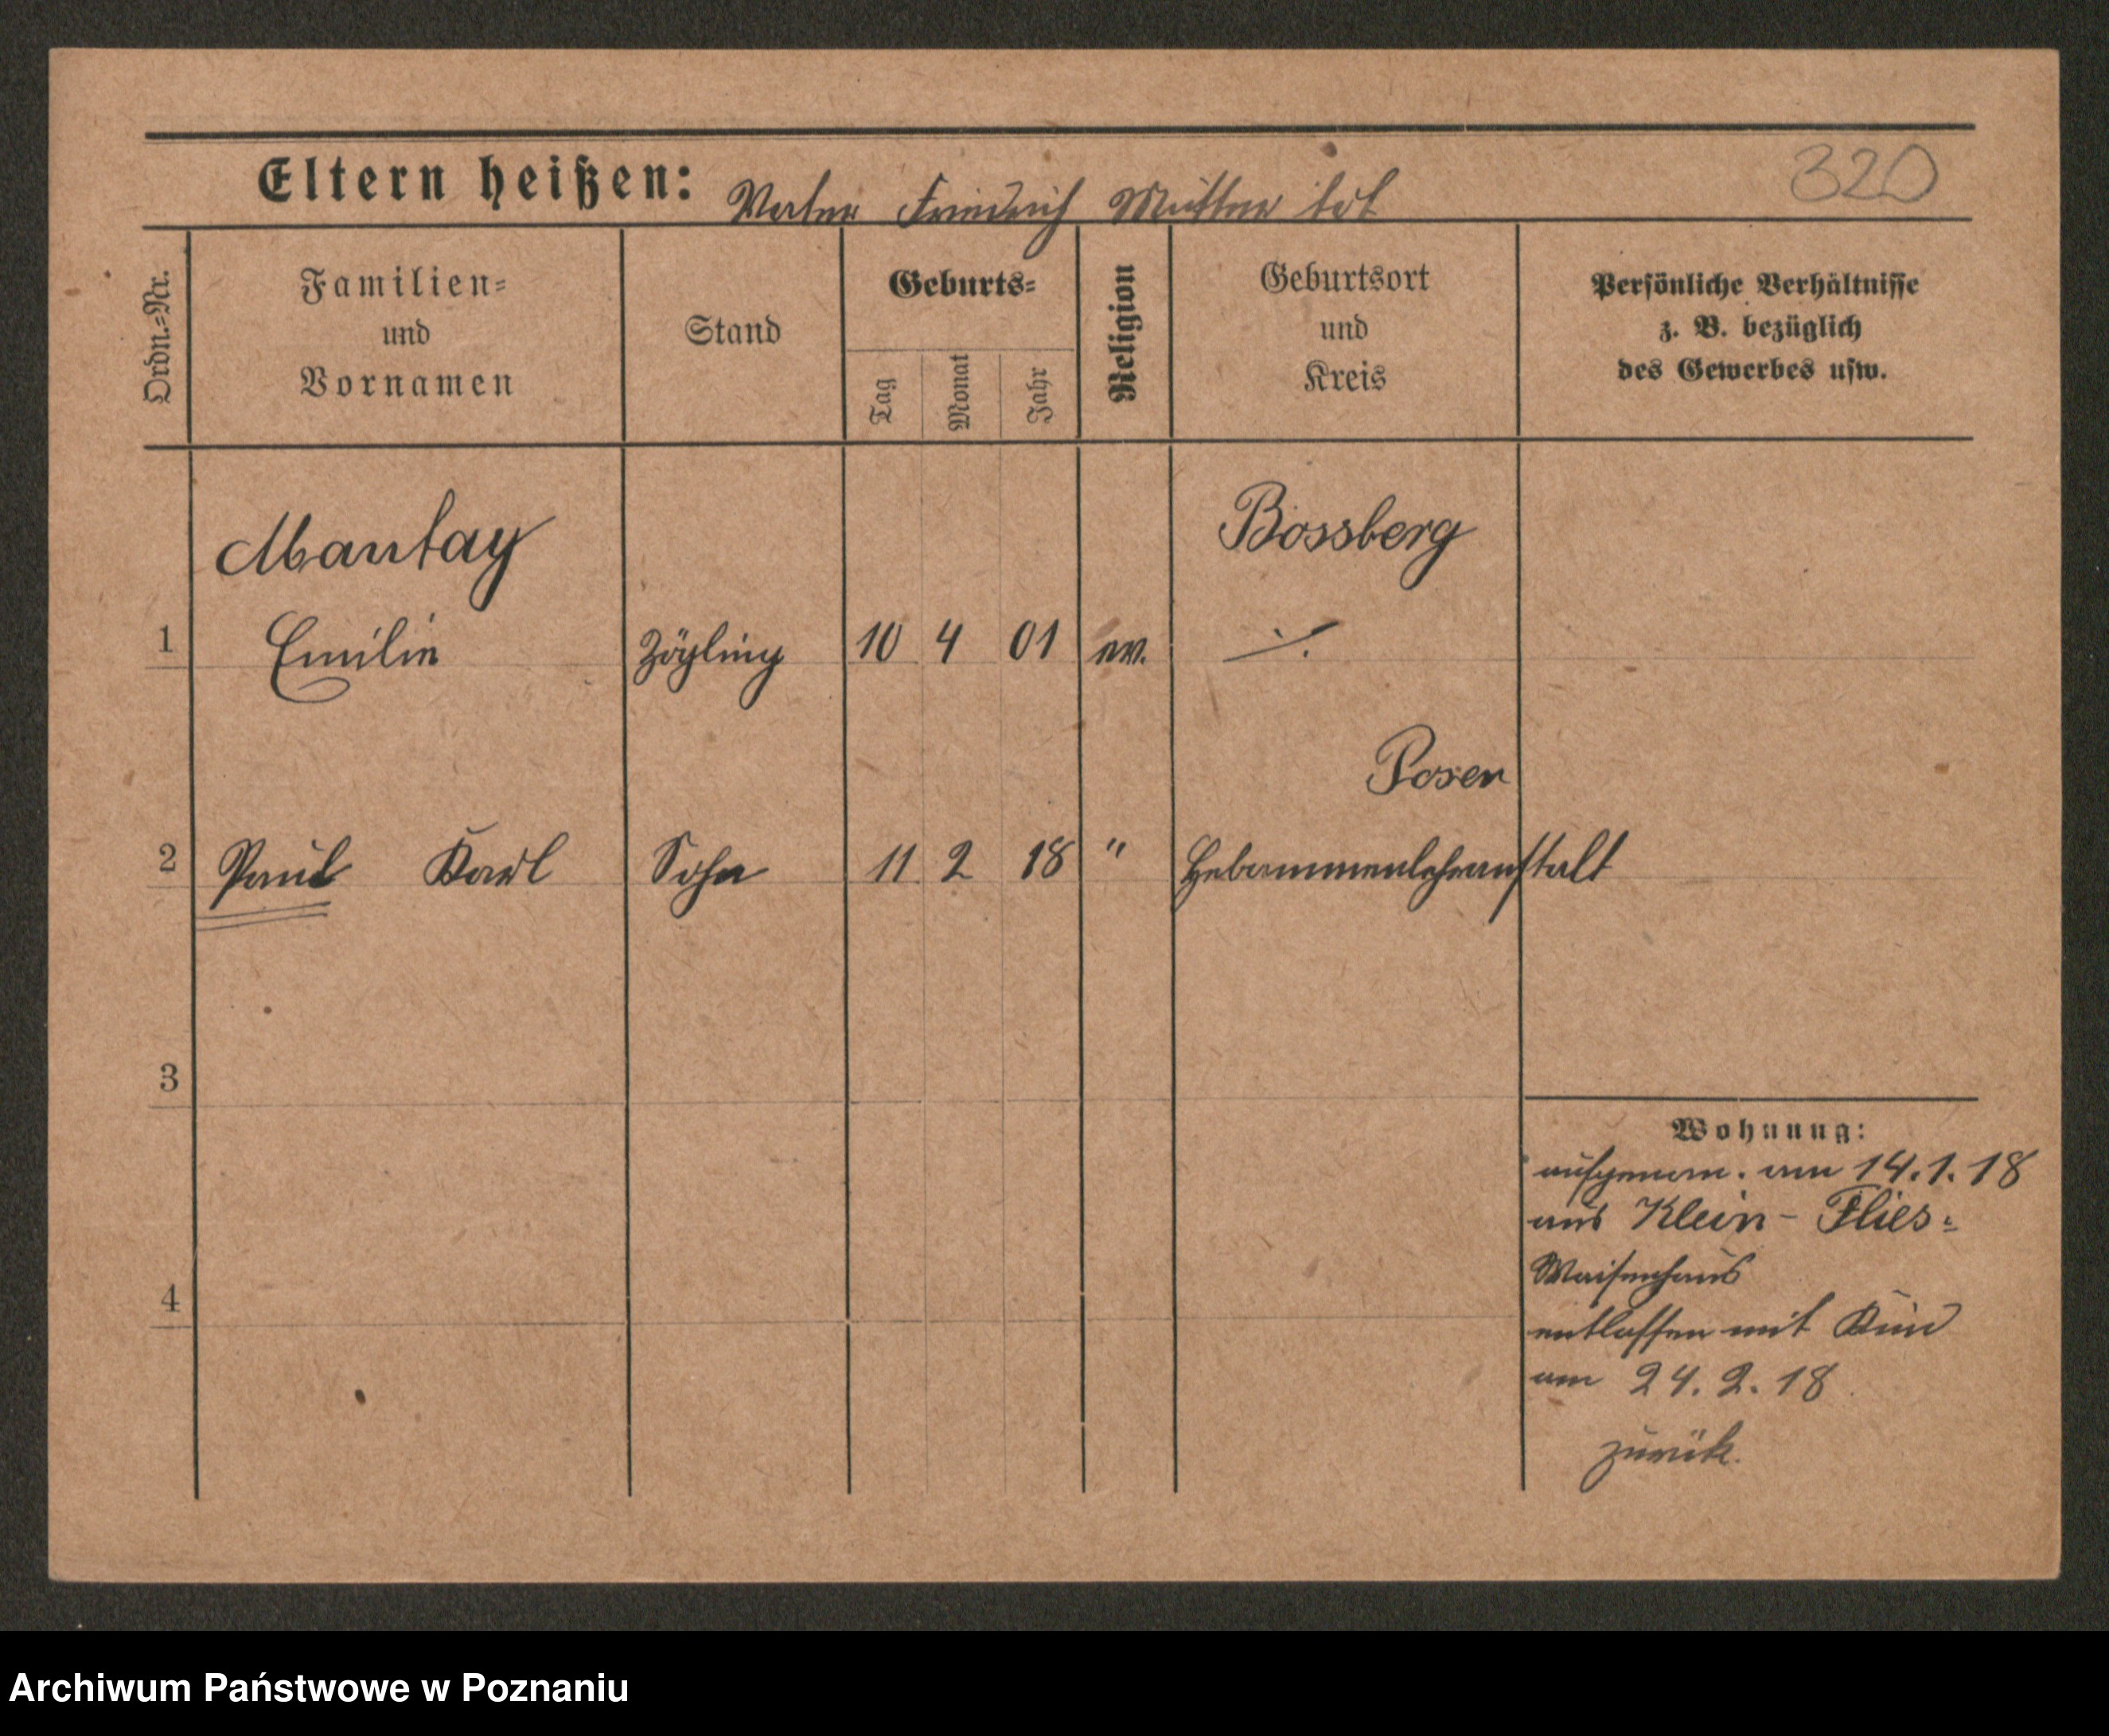 Eltern heißen: Vater Friedrich Mutter tot
320
Ordn.=Nr.
Familien=
und
Vornamen
Stand
Geburts=
Tag
Monat
Jahr
Religion
Geburtsort
und
Kreis
Persönliche Verhältnisse
z. B. bezüglich
des Gewerbes usw.
Mantay
Bossberg
1 Emilie Zögling 10 4 01 ev. ·/.
Posen
2 Paul Karl Sohn 11 2 18 " Hebammenlehranstalt
3
Wohnung:
aufgenom. am 14.1.18
aus Klein-Flies=
Waisenhaus
4
entlassen mit Kind
am 24.2.18
zurük.
Archiwum Państwowe w Poznaniu